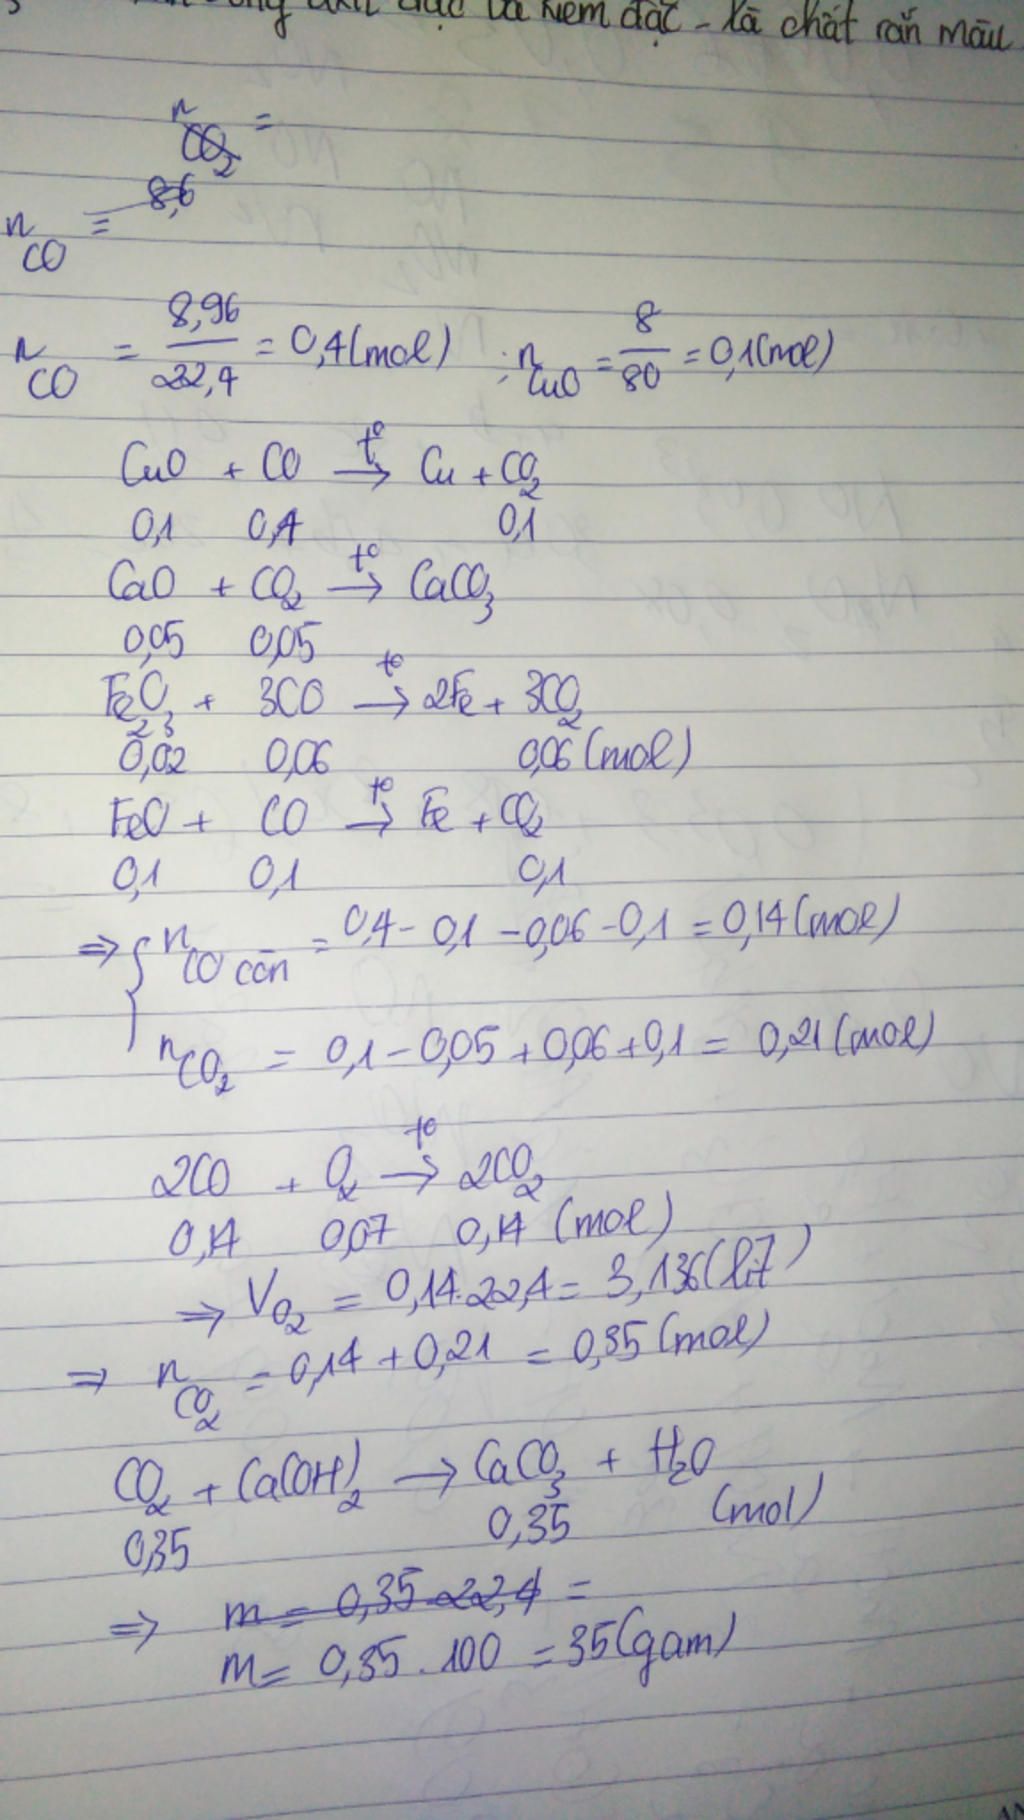 đặc và kiềm đặc - là chất rắn màu
n CO2 =
n CO = 8,6
n CO = 8,96 / 22,4 = 0,4 (mol) ; n CuO = 8 / 80 = 0,1 (mol)
CuO + CO t° → Cu + CO2
0,1 0,4 0,1
CaO + CO2 t° → CaCO3
0,05 0,05
Fe2O3 + 3CO t° → 2Fe + 3CO2
0,02 0,06 0,06 (mol)
FeO + CO t° → Fe + CO2
0,1 0,1 0,1
⇒ { n CO còn = 0,4 - 0,1 - 0,06 - 0,1 = 0,14 (mol)
n CO2 = 0,1 - 0,05 + 0,06 + 0,1 = 0,21 (mol)
2CO + O2 t° → 2CO2
0,14 0,07 0,14 (mol)
⇒ V O2 = 0,14.22,4 = 3,136 (lít)
⇒ n CO2 = 0,14 + 0,21 = 0,35 (mol)
CO2 + Ca(OH)2 → CaCO3 + H2O
0,35 0,35 (mol)
⇒ m = 0,35.22,4 =
m = 0,35 . 100 = 35 (gam)